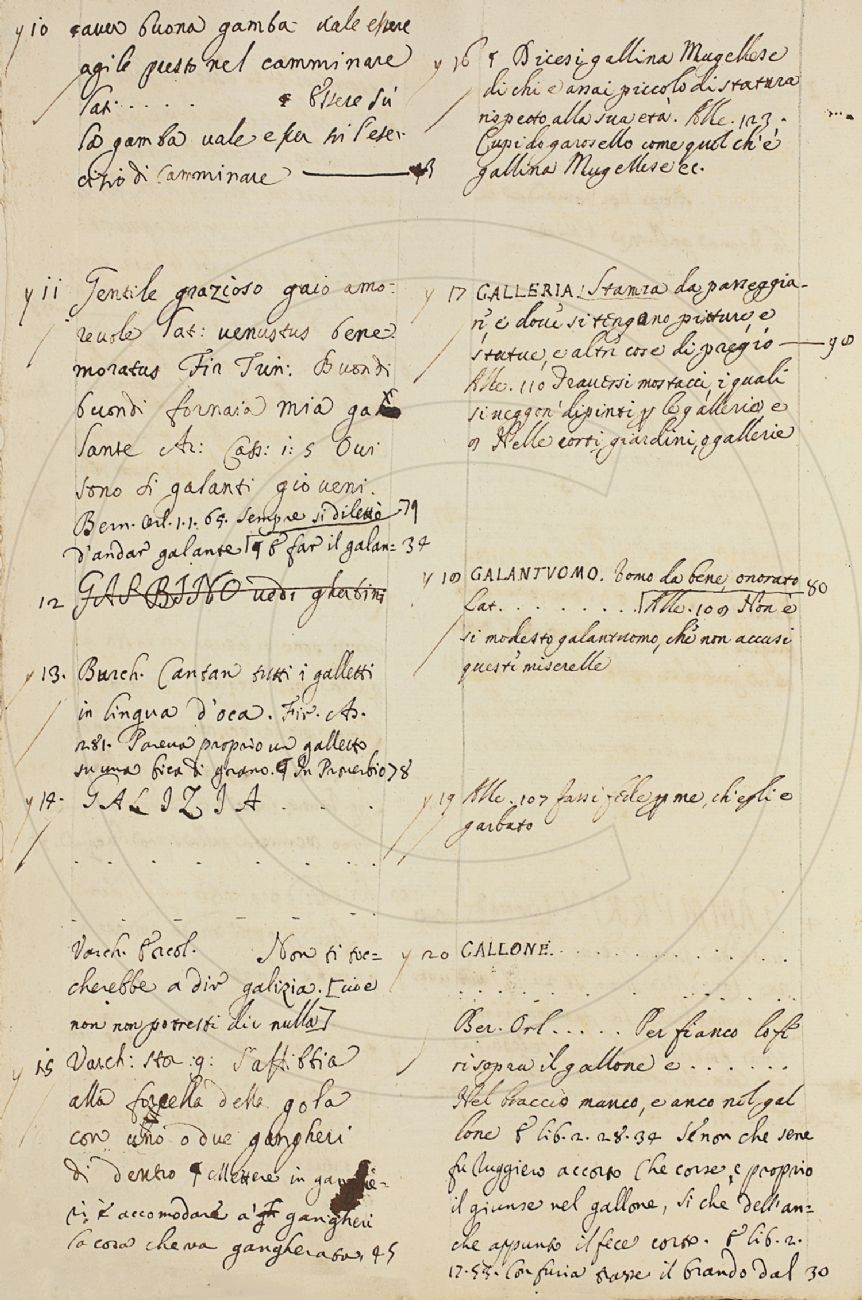 y 10 aver buona gamba vale essere
agile presto nel camminare
lat. . . . . Essere su
la gamba vale esser in l'eser-
cizio di camminare 43
y 11 Gentile grazioso gaio amo-
revole lat: venustus bene
moratus Fir Trin: Buondi
buondi fornaia mia ga
lante Ar: Cass: 1: 5 Ovi
sono di galanti gioveni.
Bern. Orl. 1. 1. 65. Sempre si dilettò 79
d'andar galante & far il galan= 34
12 GARBINO vedi gherbini
y 13. Burch. Cantan tutti i galletti
in lingua d'oca. Fir. As.
281. Pareva proprio un galletto
su una bica di grano. In Proverbio 78
y 14. GALIZIA . . . .
. . . . . . . .
. . . . . . . .
Varch. Ercol. Non ti toc=
cherebbe a dir galizia. [cioè
non non potresti dir nulla]
y 15 Varch: sto: 9: S'affibbia
alla forcella della gola
con uno o due gangheri
di dentro Mettere in ganghe=
ri è accomodare a' gangheri
la cosa che va gangherata. 45
y 16 Dicesi gallina Mugellese
di chi è assai piccolo di statura
rispetto alla sua età. Alle. 123.
Cupido garosello come quel ch'è
gallina Mugellese ec.
y 17 GALLERIA. Stanza da passeggia-
r' e dove si tengano pitture, e
statue, e altre cose di pregio 90
Alle. 110 Traversi mostacci, i quali
si veggon' dipinti p le gallerie, e
Nelle corti, giardini, o gallerie
y 18 GALANTVOMO. Uomo da bene, onorato 80
Lat. . . . . . . . . Alle. 109 Non è
sì modesto galantuomo, che non accusi
queste miserelle
y 19 Alle. 107 fassi fede p me, ch'egli è
garbato
y 20 GALLONE. . . . . . . . . .
. . . . . . . . . .
Ber. Orl. . . . . Per fianco lo fe
ri sopra il gallone e . . . . . .
Nel braccio manco, e anco nel gal
lone & lib. 2. 28. 34 Se non che sene
fu Ruggiero accorto Che corse, e proprio
il giunse nel gallone, Sì che dell'an=
che appunto il fece corto. & lib. 2.
17. 53. Con furia trasse il brando dal 30